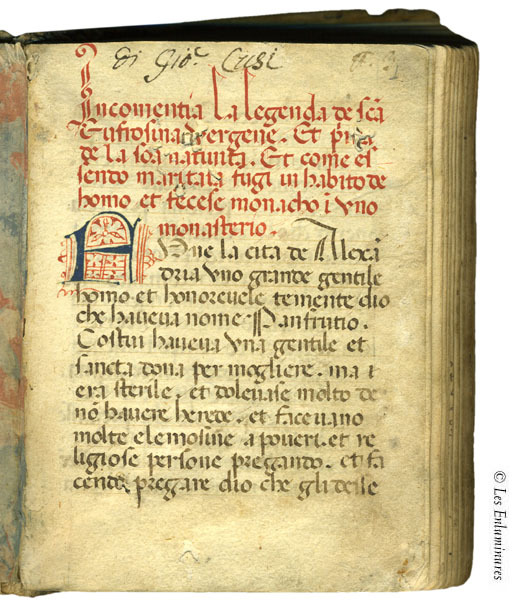 di Gio.c Cusi
Incomentia La legenda de scã
Eufrosina vergene. Et pria
de la soa natiuita. Et come es
sendo maritata fugi in habito de
homo et fecese monacho ĩ vno
monasterio.
FVone la cita de Alexã
dria vno grande gentile
homo et honoreuele temente dio
che haueua nome Panfnutio.
Costui haueua vna gentile et
sancta dona per mogliere. ma i
era sterile. et doleuase molto de
nõ hauere herede. et faceuano
molte elemosine a poueri. et re
ligiose persone pregando. et fa
cendo pregare dio che gli desse
© Les Enluminures